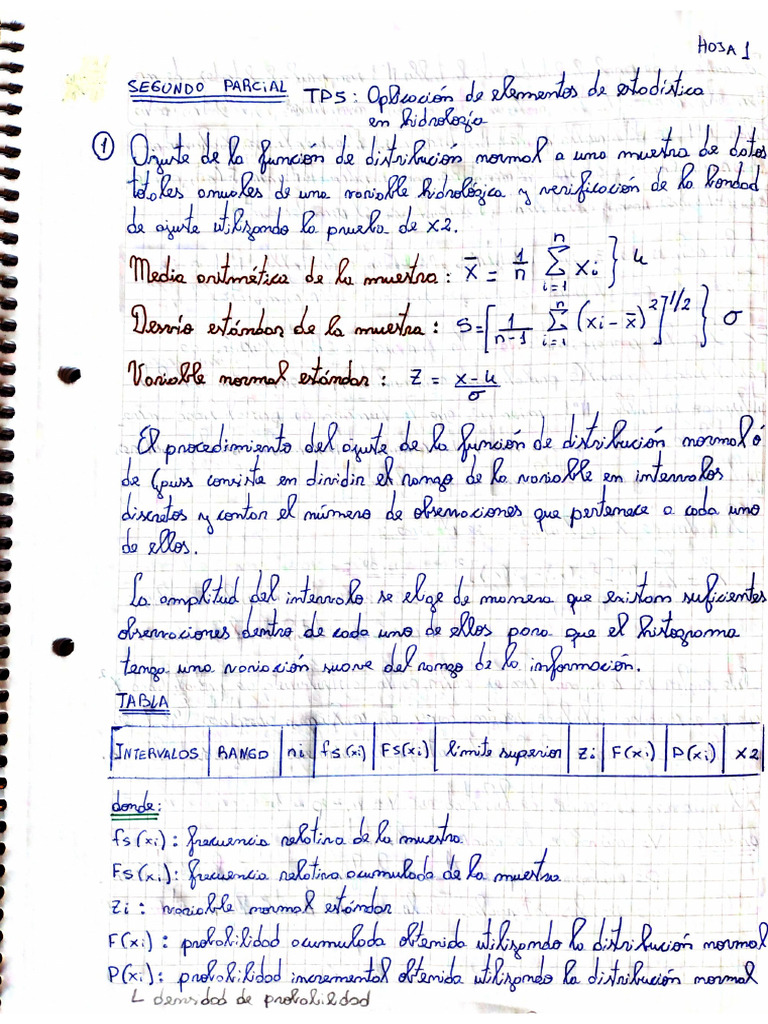 HOJA 1
SEGUNDO PARCIAL TP5: Aplicación de elementos de estadística
en hidrología
① Ajuste de la función de distribución normal a una muestra de datos
totales anuales de una variable hidrológica y verificación de la bondad
de ajuste utilizando la prueba de x2.
Media aritmética de la muestra: x̄ = 1/n Σ(i=1→n) xi } u
Desvío estándar de la muestra: S=[1/(n-1) Σ(i=1→n) (xi - x̄)²]^1/2 } σ
Variable normal estándar: Z = (x-u)/σ
El procedimiento del ajuste de la función de distribución normal ó
de Gauss consiste en dividir el rango de la variable en intervalos
discretos y contar el número de observaciones que pertenece a cada uno
de ellos.
La amplitud del intervalo se elige de manera que existan suficientes
observaciones dentro de cada uno de ellos para que el histograma
tenga una variación suave del rango de la información.
TABLA
INTERVALOS | RANGO | ni | fs(xi) | Fs(xi) | límite superior | Zi | F(xi) | P(xi) | X2
donde:
fs(xi): frecuencia relativa de la muestra
Fs(xi): frecuencia relativa acumulada de la muestra
Zi: variable normal estándar
F(xi): probabilidad acumulada obtenida utilizando la distribución normal
P(xi): probabilidad incremental obtenida utilizando la distribución normal
L densidad de probabilidad